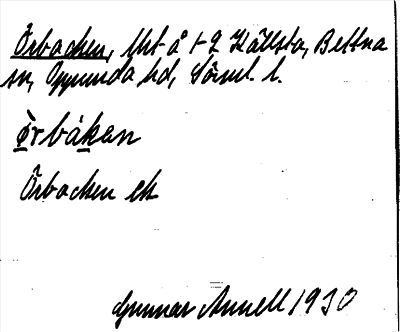 Örbacken, lht å 1-2 Källsta, Bettna
sn, Oppunda hd, Söml. l.
ö̀rbákan
Örbacken ek
Gunnar Annell 1930